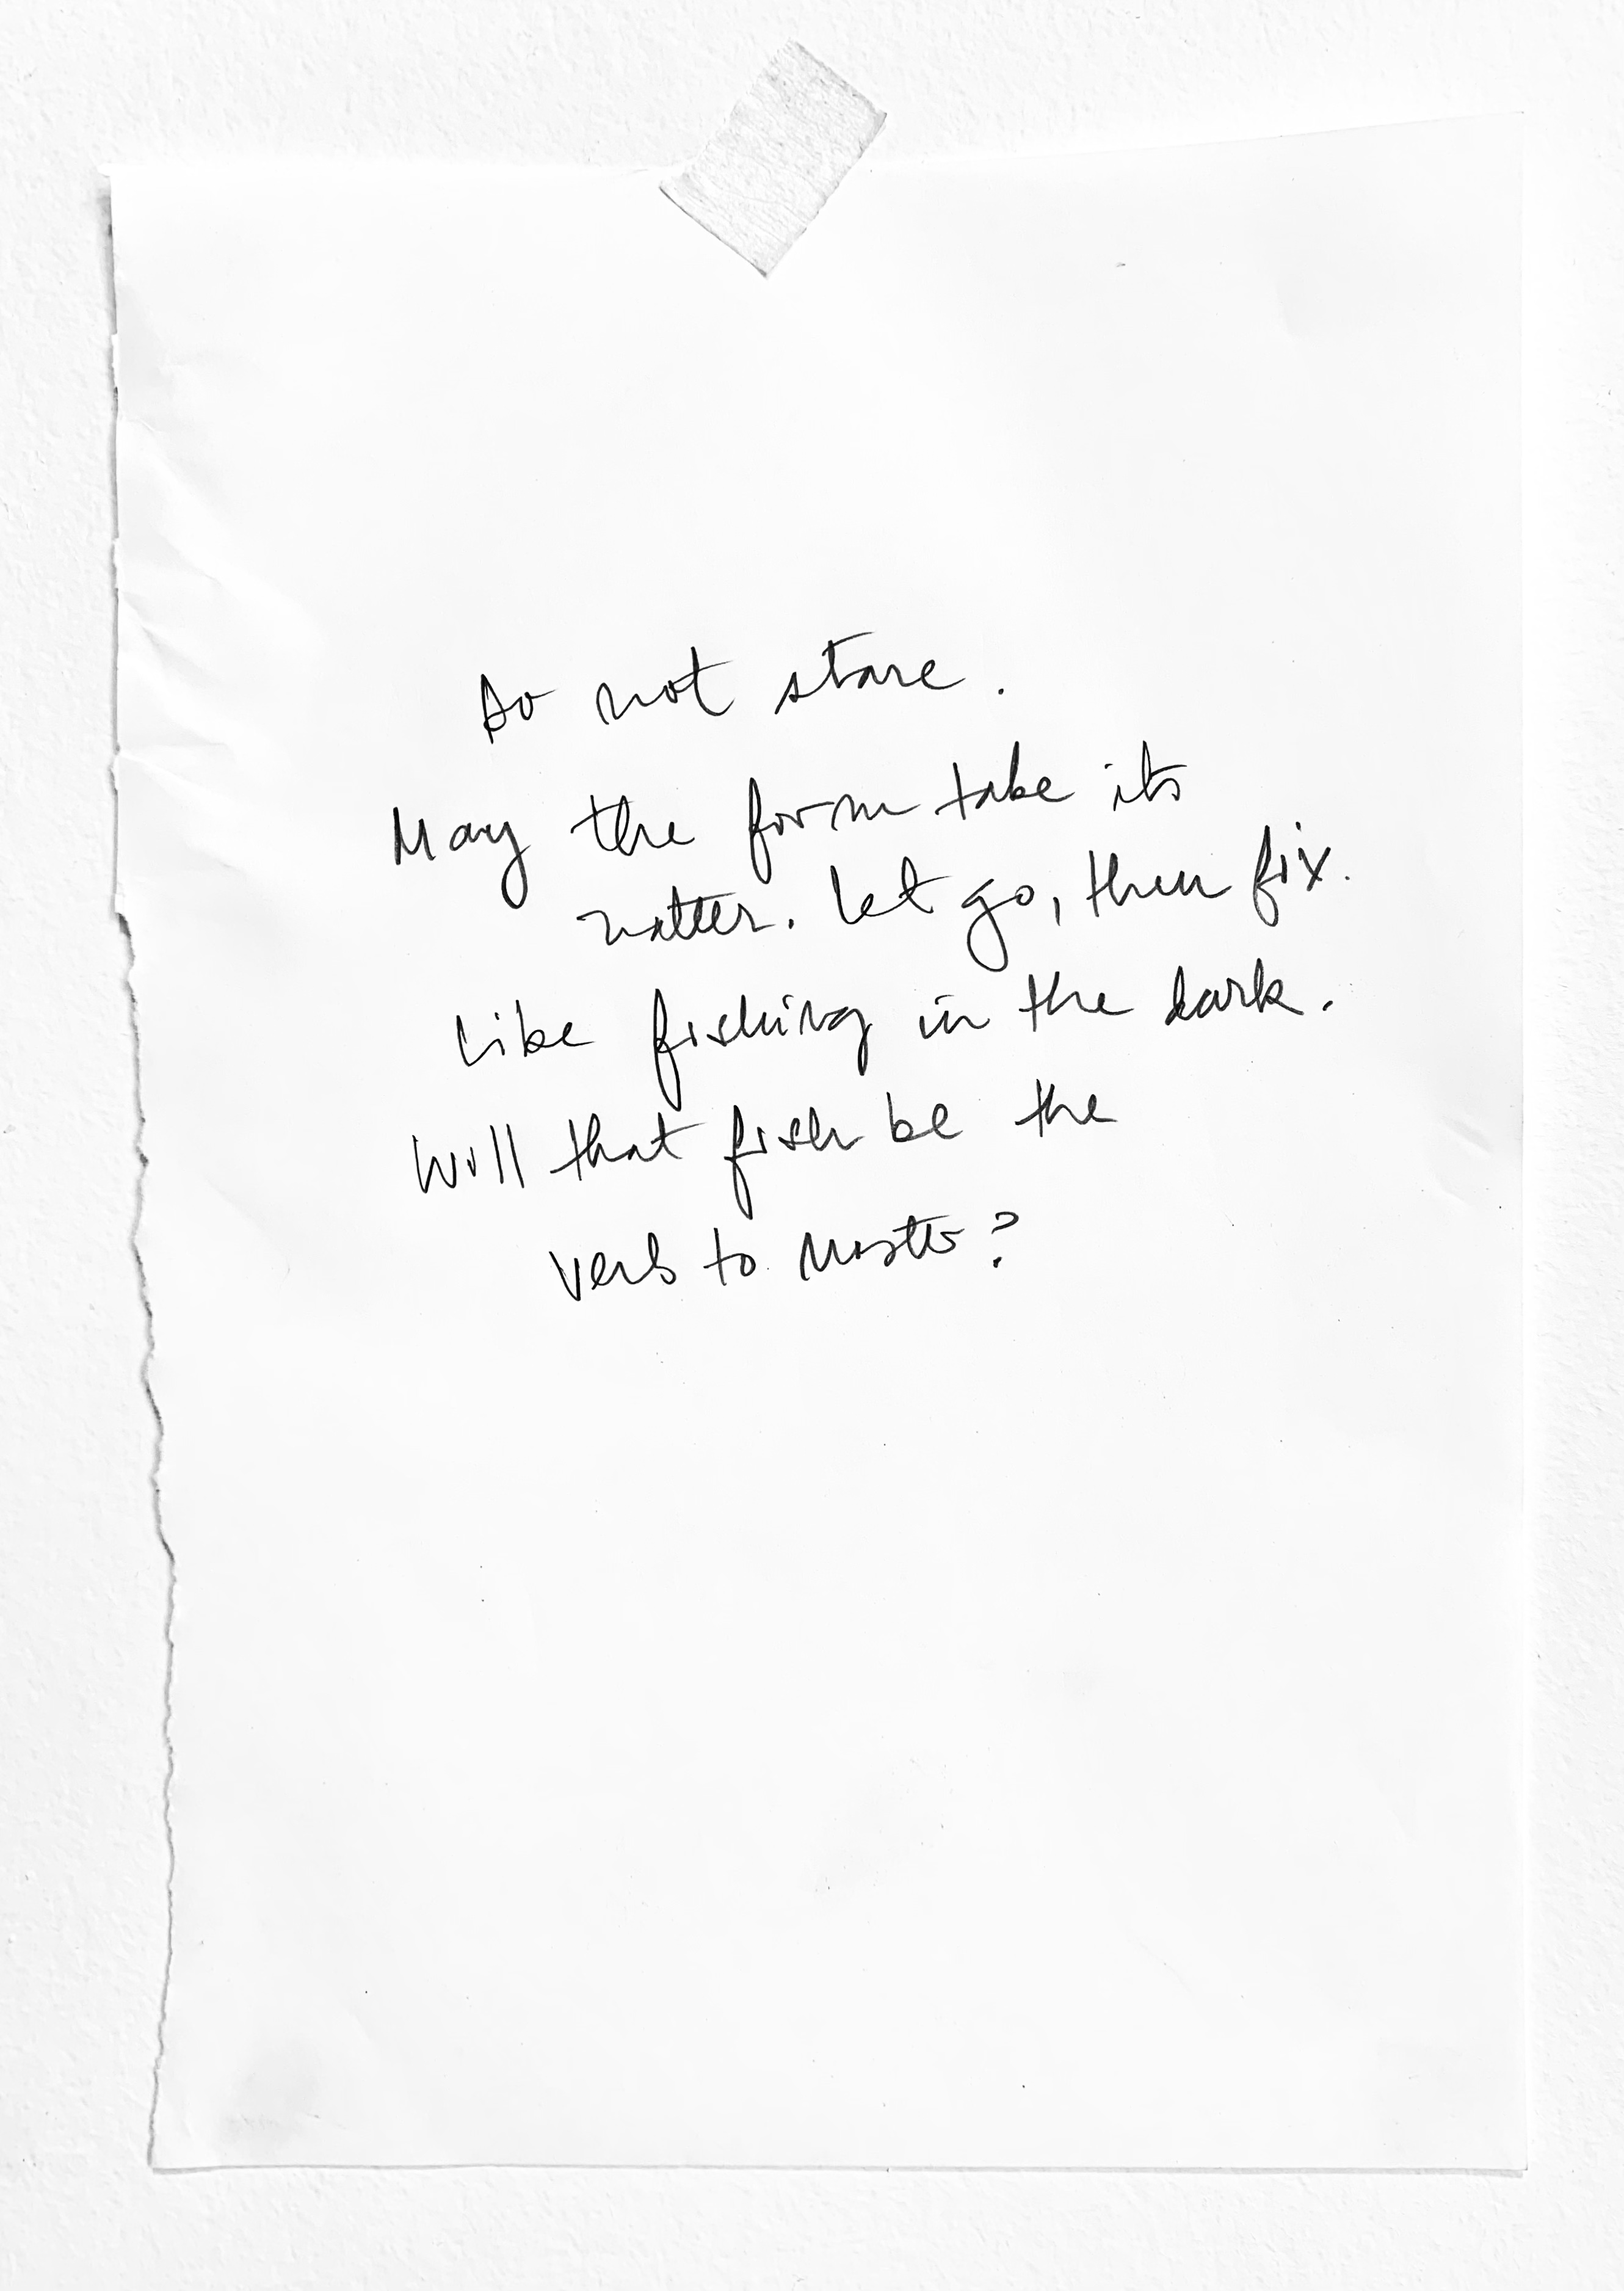 Do not stare.
May the form take its
matter. Let go, then fix.
Like fishing in the dark.
Will that fish be the
verb to master?